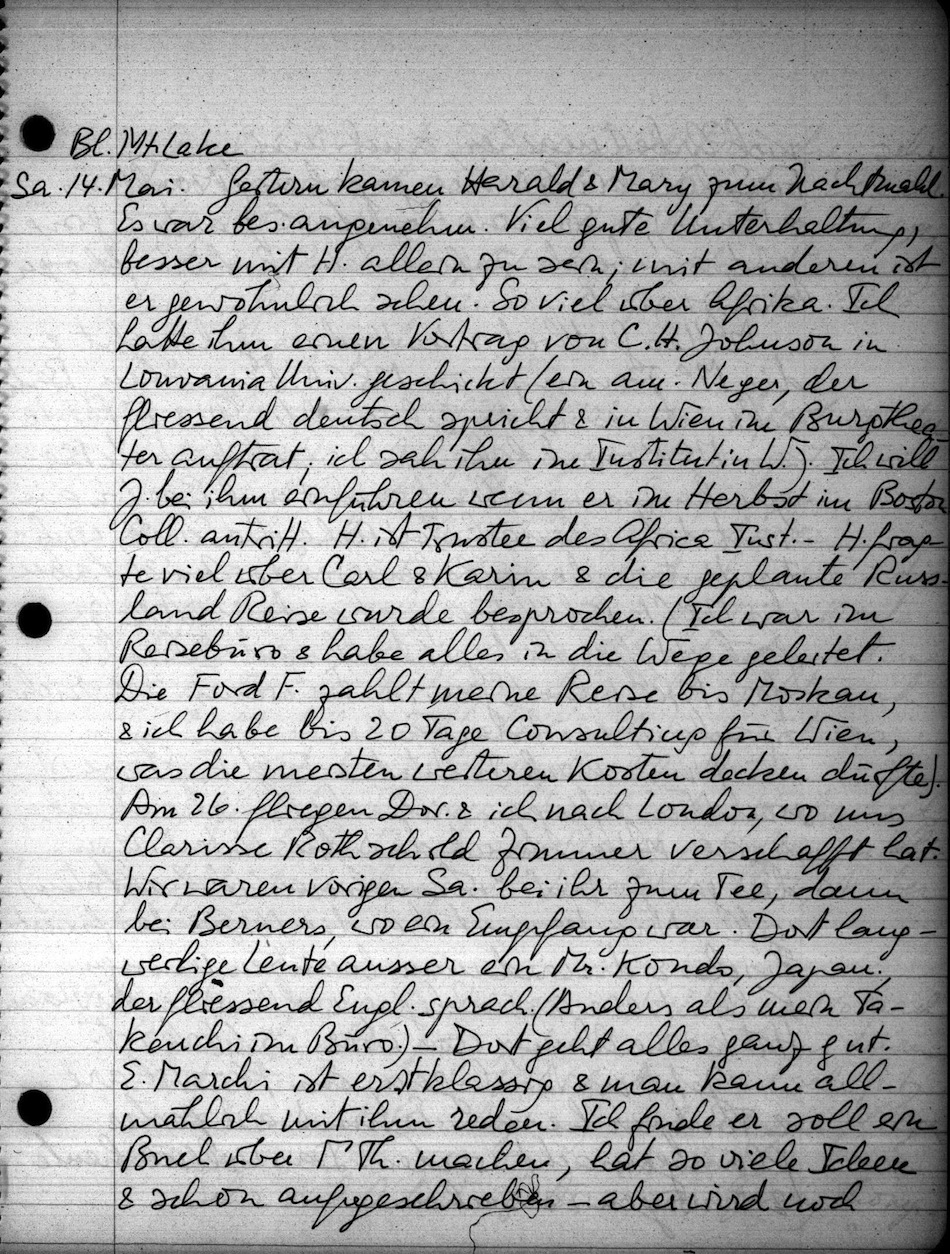 Bl. Mt Lake
Sa. 14. Mai. Gestern kamen Harald & Mary zum Nachtmahl
Es war bes. angenehm. Viel gute Unterhaltung,
besser mit H. allein zu sein; mit anderen ist
er gewöhnlich scheu. So viel über Afrika. Ich
hatte ihm einen Vortrag von C.H. Johnson in
Louvania Univ. geschickt (ein am. Neger, der
fliessend deutsch spricht & in Wien im Burgthea-
ter auftrat; ich sah ihn im Institut in W.). Ich will
J. bei ihm einführen wenn er im Herbst im Boston
Coll. antritt. H. ist Trustee des Africa Inst. – H. frag-
te viel über Carl & Karin & die geplante Russ-
land Reise wurde besprochen. (Ich war im
Reisebüro & habe alles in die Wege geleitet.
Die Ford F. zahlt meine Reise bis Moskau,
& ich habe bis 20 Tage Consulting für Wien,
was die meisten weiteren Kosten decken dürfte).
Am 26. fliegen Dor. & ich nach London, wo uns
Clarisse Rothschild Zimmer verschafft hat.
Wir waren vorigen Sa. bei ihr zum Tee, dann
bei Berners, wo ein Empfang war. Dort lang-
weilige Leute ausser ein Mr. Kondo, Japan.,
der fliessend Engl. sprach. (Anders als mein Ta-
keuchi im Büro.) – Dort geht alles ganz gut.
E. Marchi ist erstklassig & man kann all-
mählich mit ihm reden. Ich finde er soll ein
Buch über Γ Th. machen, hat so viele Ideen
& schon aufgeschrieben – aber wird noch